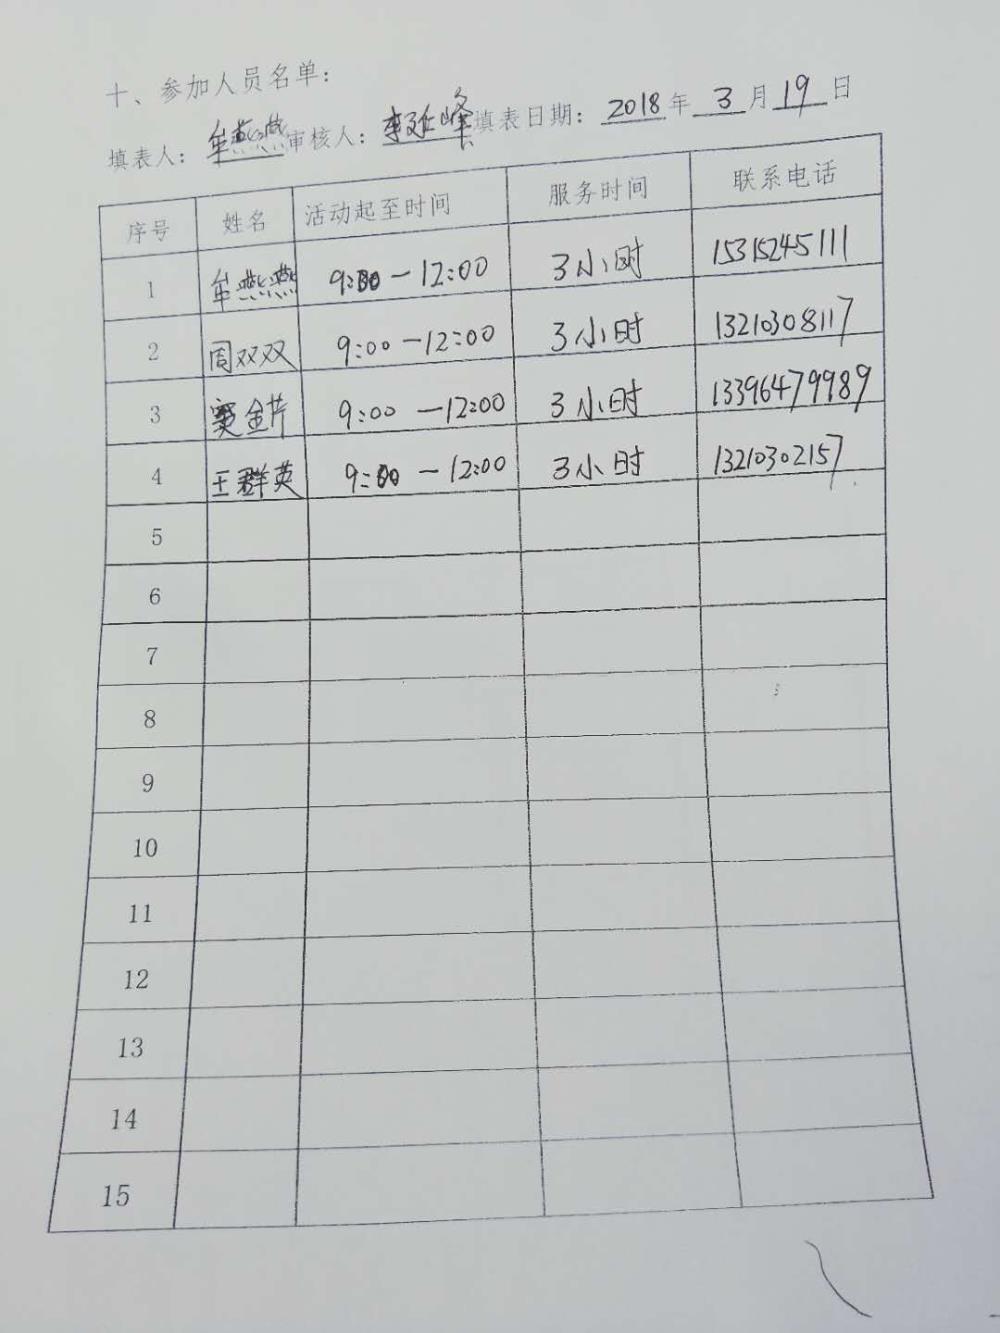 十、参加人员名单：
填表人：牟燕燕 审核人：李延峰 填表日期：2018年3月19日
序号 姓名 活动起至时间 服务时间 联系电话
1 牟燕燕 9:00－12:00 3小时 15315245111
2 周双双 9:00－12:00 3小时 13210308117
3 窦金芹 9:00－12:00 3小时 13396479989
4 王群英 9:00－12:00 3小时 13210302157
5
6
7
8
9
10
11
12
13
14
15